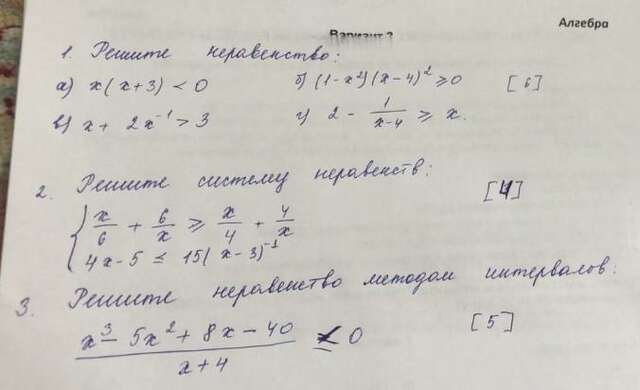 Алгебра
Вариант 2
1. Решите неравенство:
а) x(x+3) < 0 б) (1-x²)(x-4)² ≥ 0 [6]
в) x + 2x⁻¹ > 3 г) 2 - 1/(x-4) ≥ x.
2. Решите систему неравенств: [4]
{ x/6 + 6/x ≥ x/4 + 4/x
4x-5 ≤ 15(x-3)⁻¹
3. Решите неравенство методом интервалов:
(x³ - 5x² + 8x - 40)/(x+4) ≤ 0 [5]